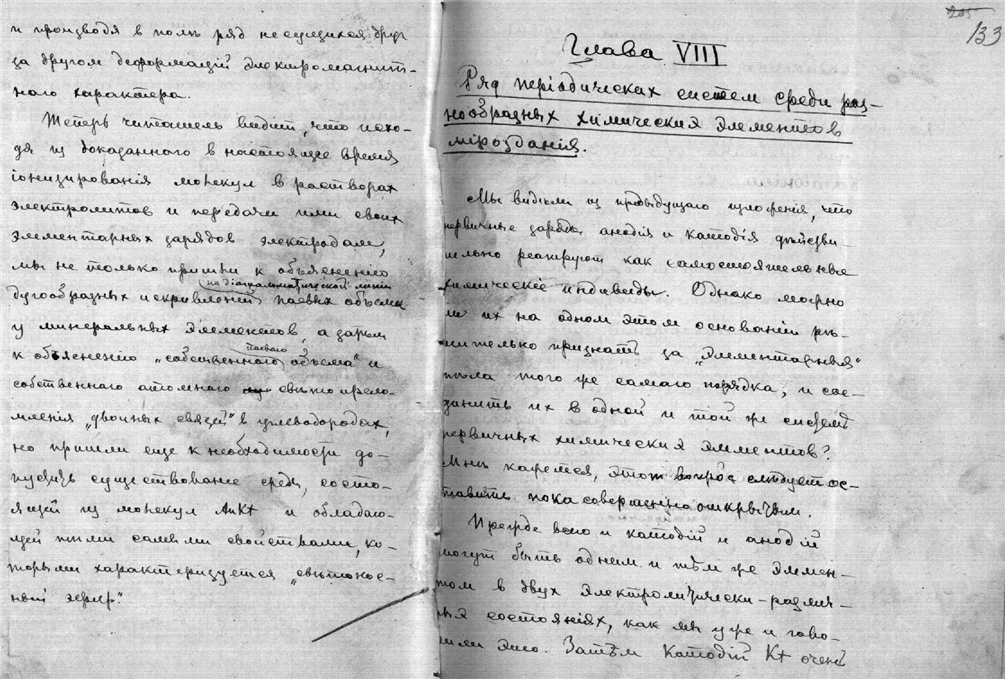 и производя в немъ рядъ несущихся другъ
за другом деформацій электромагнит-
ного характера.
Теперь читатель видит, что исхо-
дя из доказанного в настоящее время
іонизированія молекул в растворах
электролитов и передачи ими своих
элементарных зарядов электродам,
мы не только пришли к объясненію
на діаграмматической линіи
дугообразных искривленій паевых объемов
у минеральных элементов, а затем
паеваго
к объясненію „собственного объема" и
собственного атомного свѣтопрело-
мленія „двойных связей" в углеводородах,
но пришли еще к необходимости до-
пустить существованіе среды, состо-
ящей из молекул AnKt и обладаю-
щей тѣми самыми свойствами, ко-
торыми характеризуется „свѣтонос-
ный эѳир".
205
133
Глава VIII
Ряд періодических систем среди раз-
нообразных химических элементов
мірозданія.
Мы видѣли из предыдущаго изложенія, что
первичные заряды анодія и катодія дѣйстви-
тельно реагируют как самостоятельные
химическіе индивиды. Однако можно
ли их на одном этом основаніи рѣ-
шительно признать за „элементарныя"
тѣла того же самаго порядка, и сое-
динить их в одной и той же системѣ
первичных химических элементов?
Мнѣ кажется, этот вопрос слѣдует ос-
тавить пока совершенно открытым.
Прежде всего и катодій и анодій
могут быть одним и тѣм же элемен-
том в двух электрически-различ-
ных состояніях, как мы уже и гово-
рили это. Затѣм Катодій Kt очень